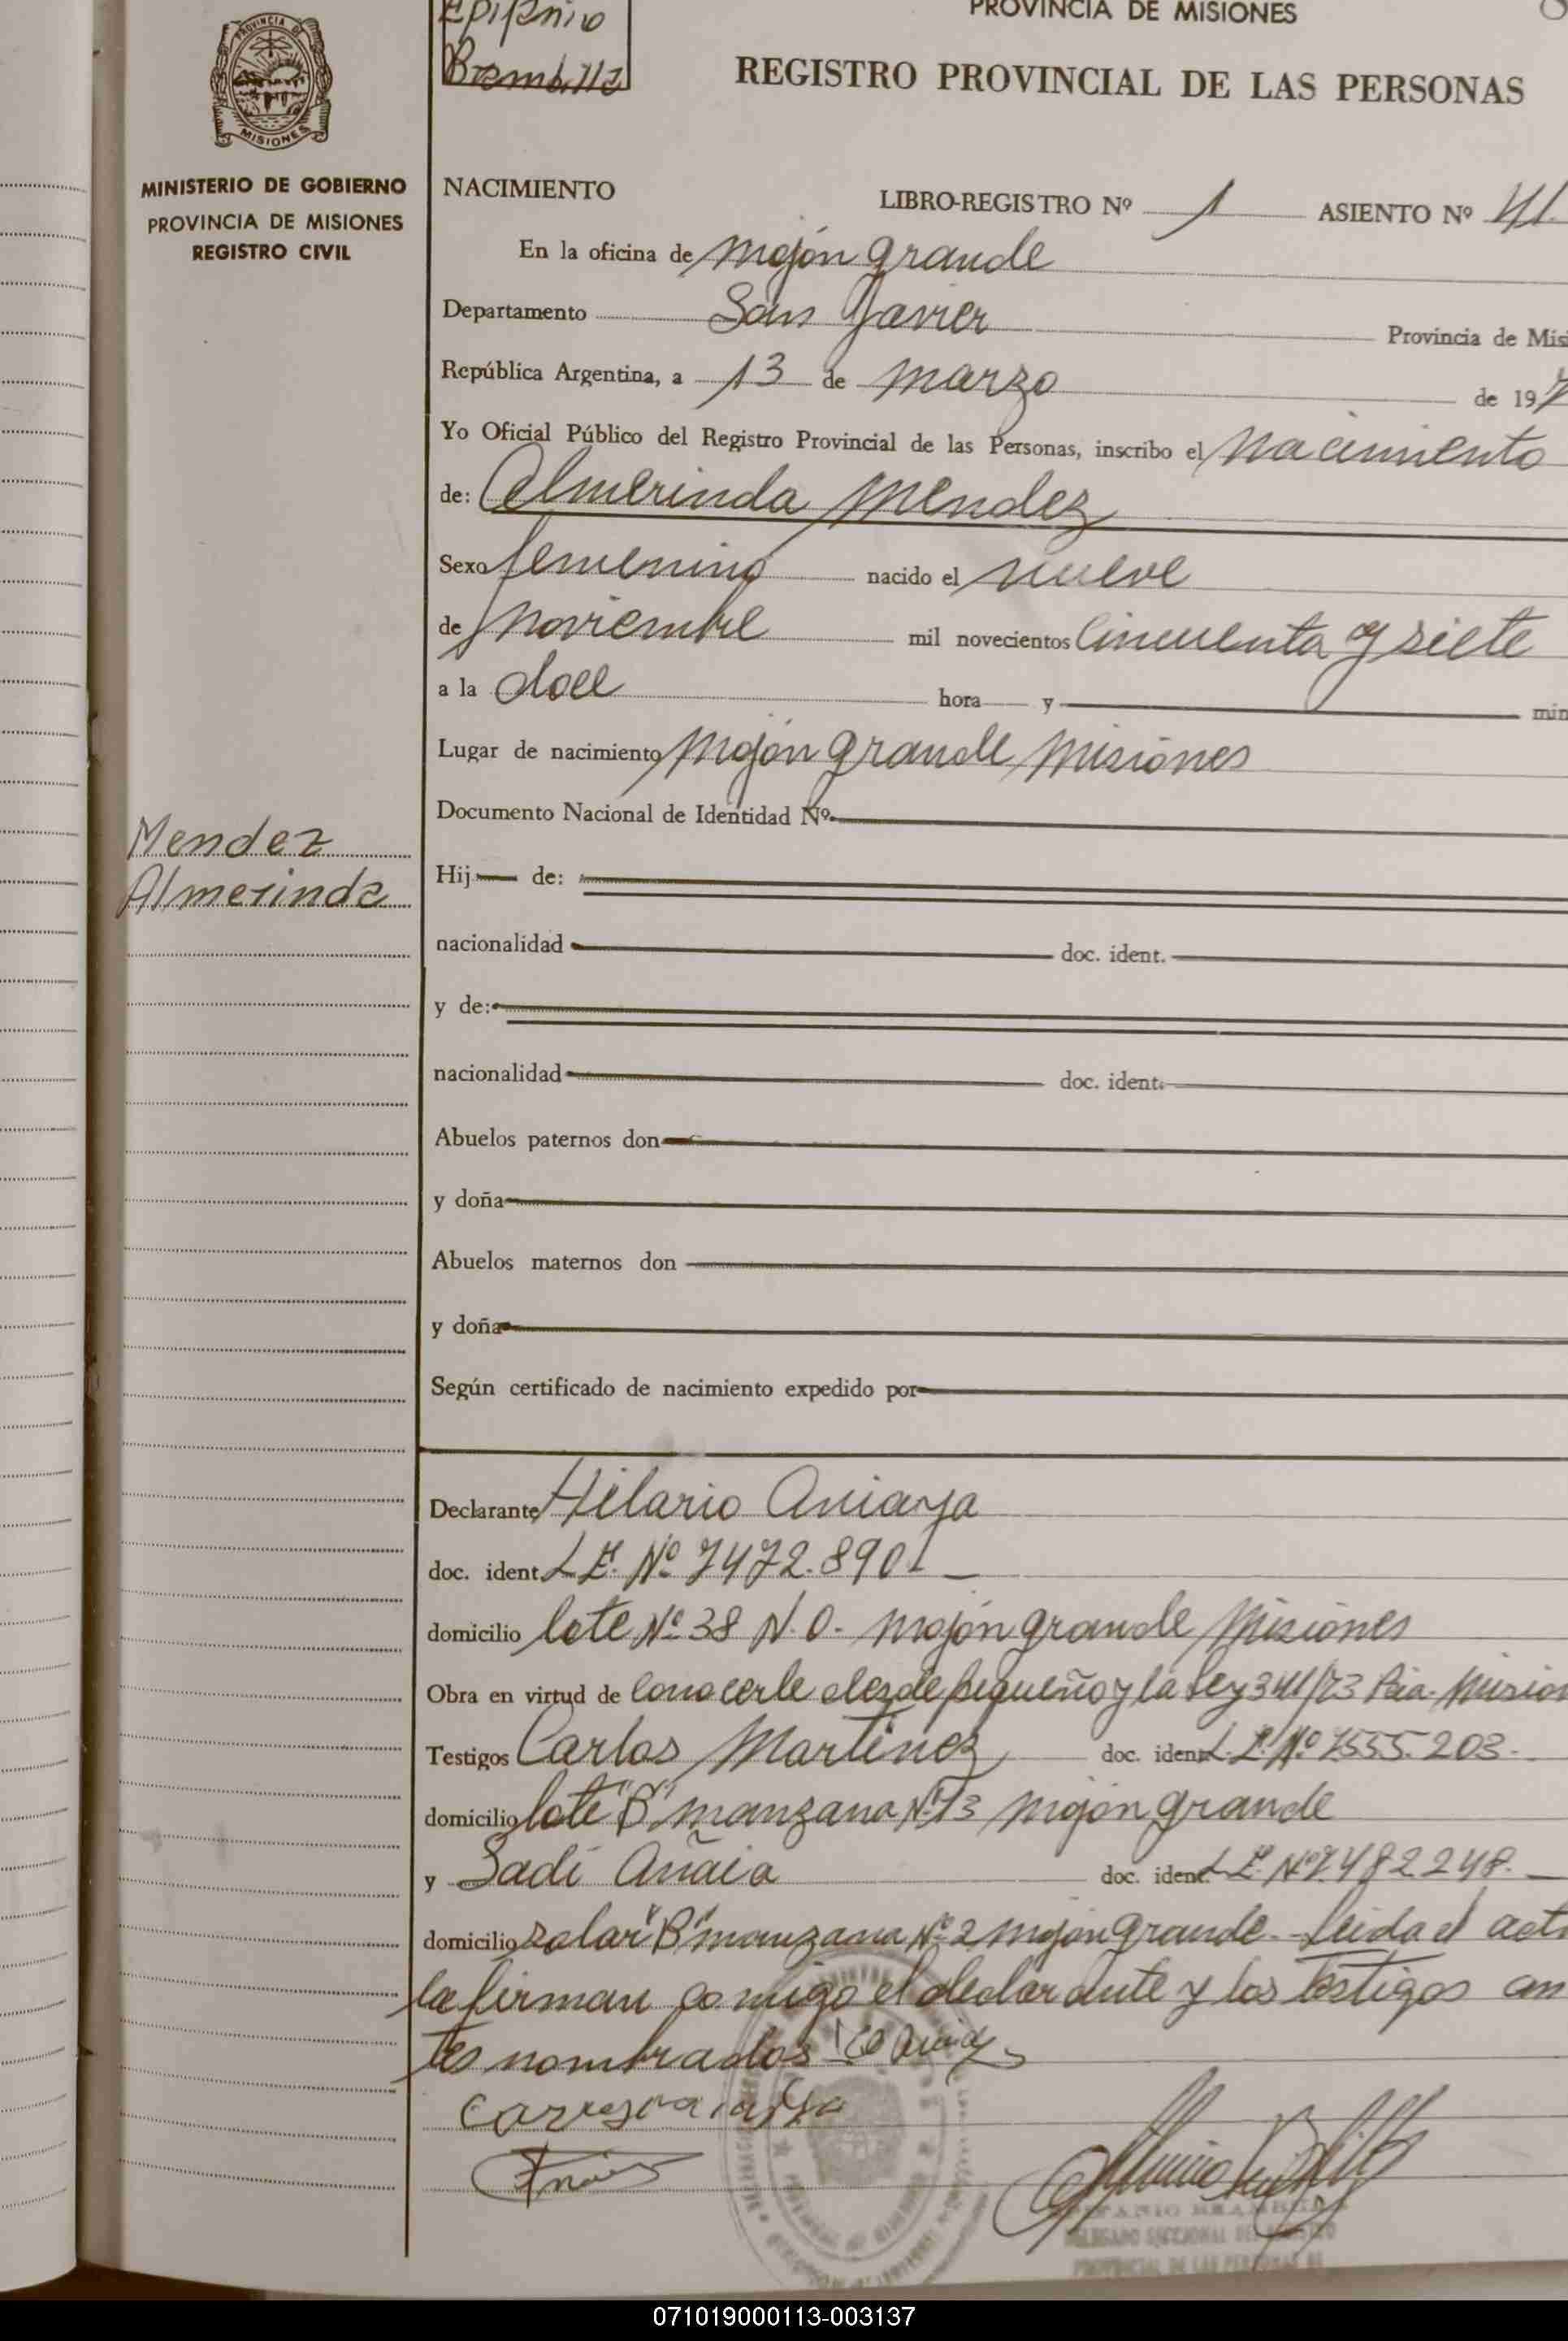 Epifanio
Brambilla
PROVINCIA DE MISIONES
REGISTRO PROVINCIAL DE LAS PERSONAS
PROVINCIA DE
MISIONES
MINISTERIO DE GOBIERNO
PROVINCIA DE MISIONES
REGISTRO CIVIL
NACIMIENTO
LIBRO-REGISTRO Nº 1 ASIENTO Nº 41
En la oficina de Mojón grande
Departamento San Javier Provincia de Mis
República Argentina, a 13 de marzo de 197
Yo Oficial Público del Registro Provincial de las Personas, inscribo el Nacimiento
de: Almerinda Mendez
Sexo femenino nacido el nueve
de Noviembre mil novecientos Cincuenta y siete
a la doce hora y min
Lugar de nacimiento Mojón grande Misiónes
Documento Nacional de Identidad Nº
Mendez
Almerinda
Hij de:
nacionalidad doc. ident.
y de:
nacionalidad doc. ident.
Abuelos paternos don
y doña
Abuelos maternos don
y doña
Según certificado de nacimiento expedido por
Declarante Hilario
doc. ident. L.E. Nº 7472.890
domicilio lote Nº 38 N.O. Mojón grande Misiónes
Obra en virtud de conocerle desde pequeño y la Ley 341/73 Pcia. Mision
Testigos Carlos Martinez doc. ident. L.E. Nº 7555.203.
domicilio lote "B" manzana Nº 13 Mojón grande
y Sadí Añaia doc. ident. L.E. Nº 7.482248.
domicilio solar "B" manzana Nº 2 Mojón grande. Leida el acta
la firman comigo el declarante y los testigos an
tes nombrados
DELEGADO SECCIONAL DEL REGISTRO
PROVINCIAL DE LAS PERSONAS
071019000113-003137